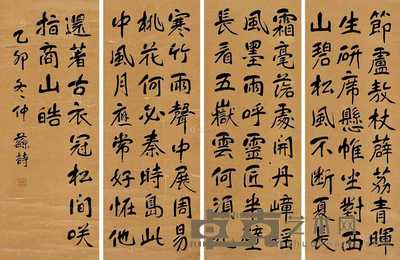 節盧敖杖薜荔青暉
生研席懸帷坐對西
山碧松風不斷夏長
霜毫落處開丹嶂
風墨雨呼靈匠半壁
長看五嶽雲何須九
寒竹雨聲中展周易
桃花何必秦時島此
中風月應常好恠他
還著古衣冠松間咲
指商山皓
乙卯冬仲 蘇詩